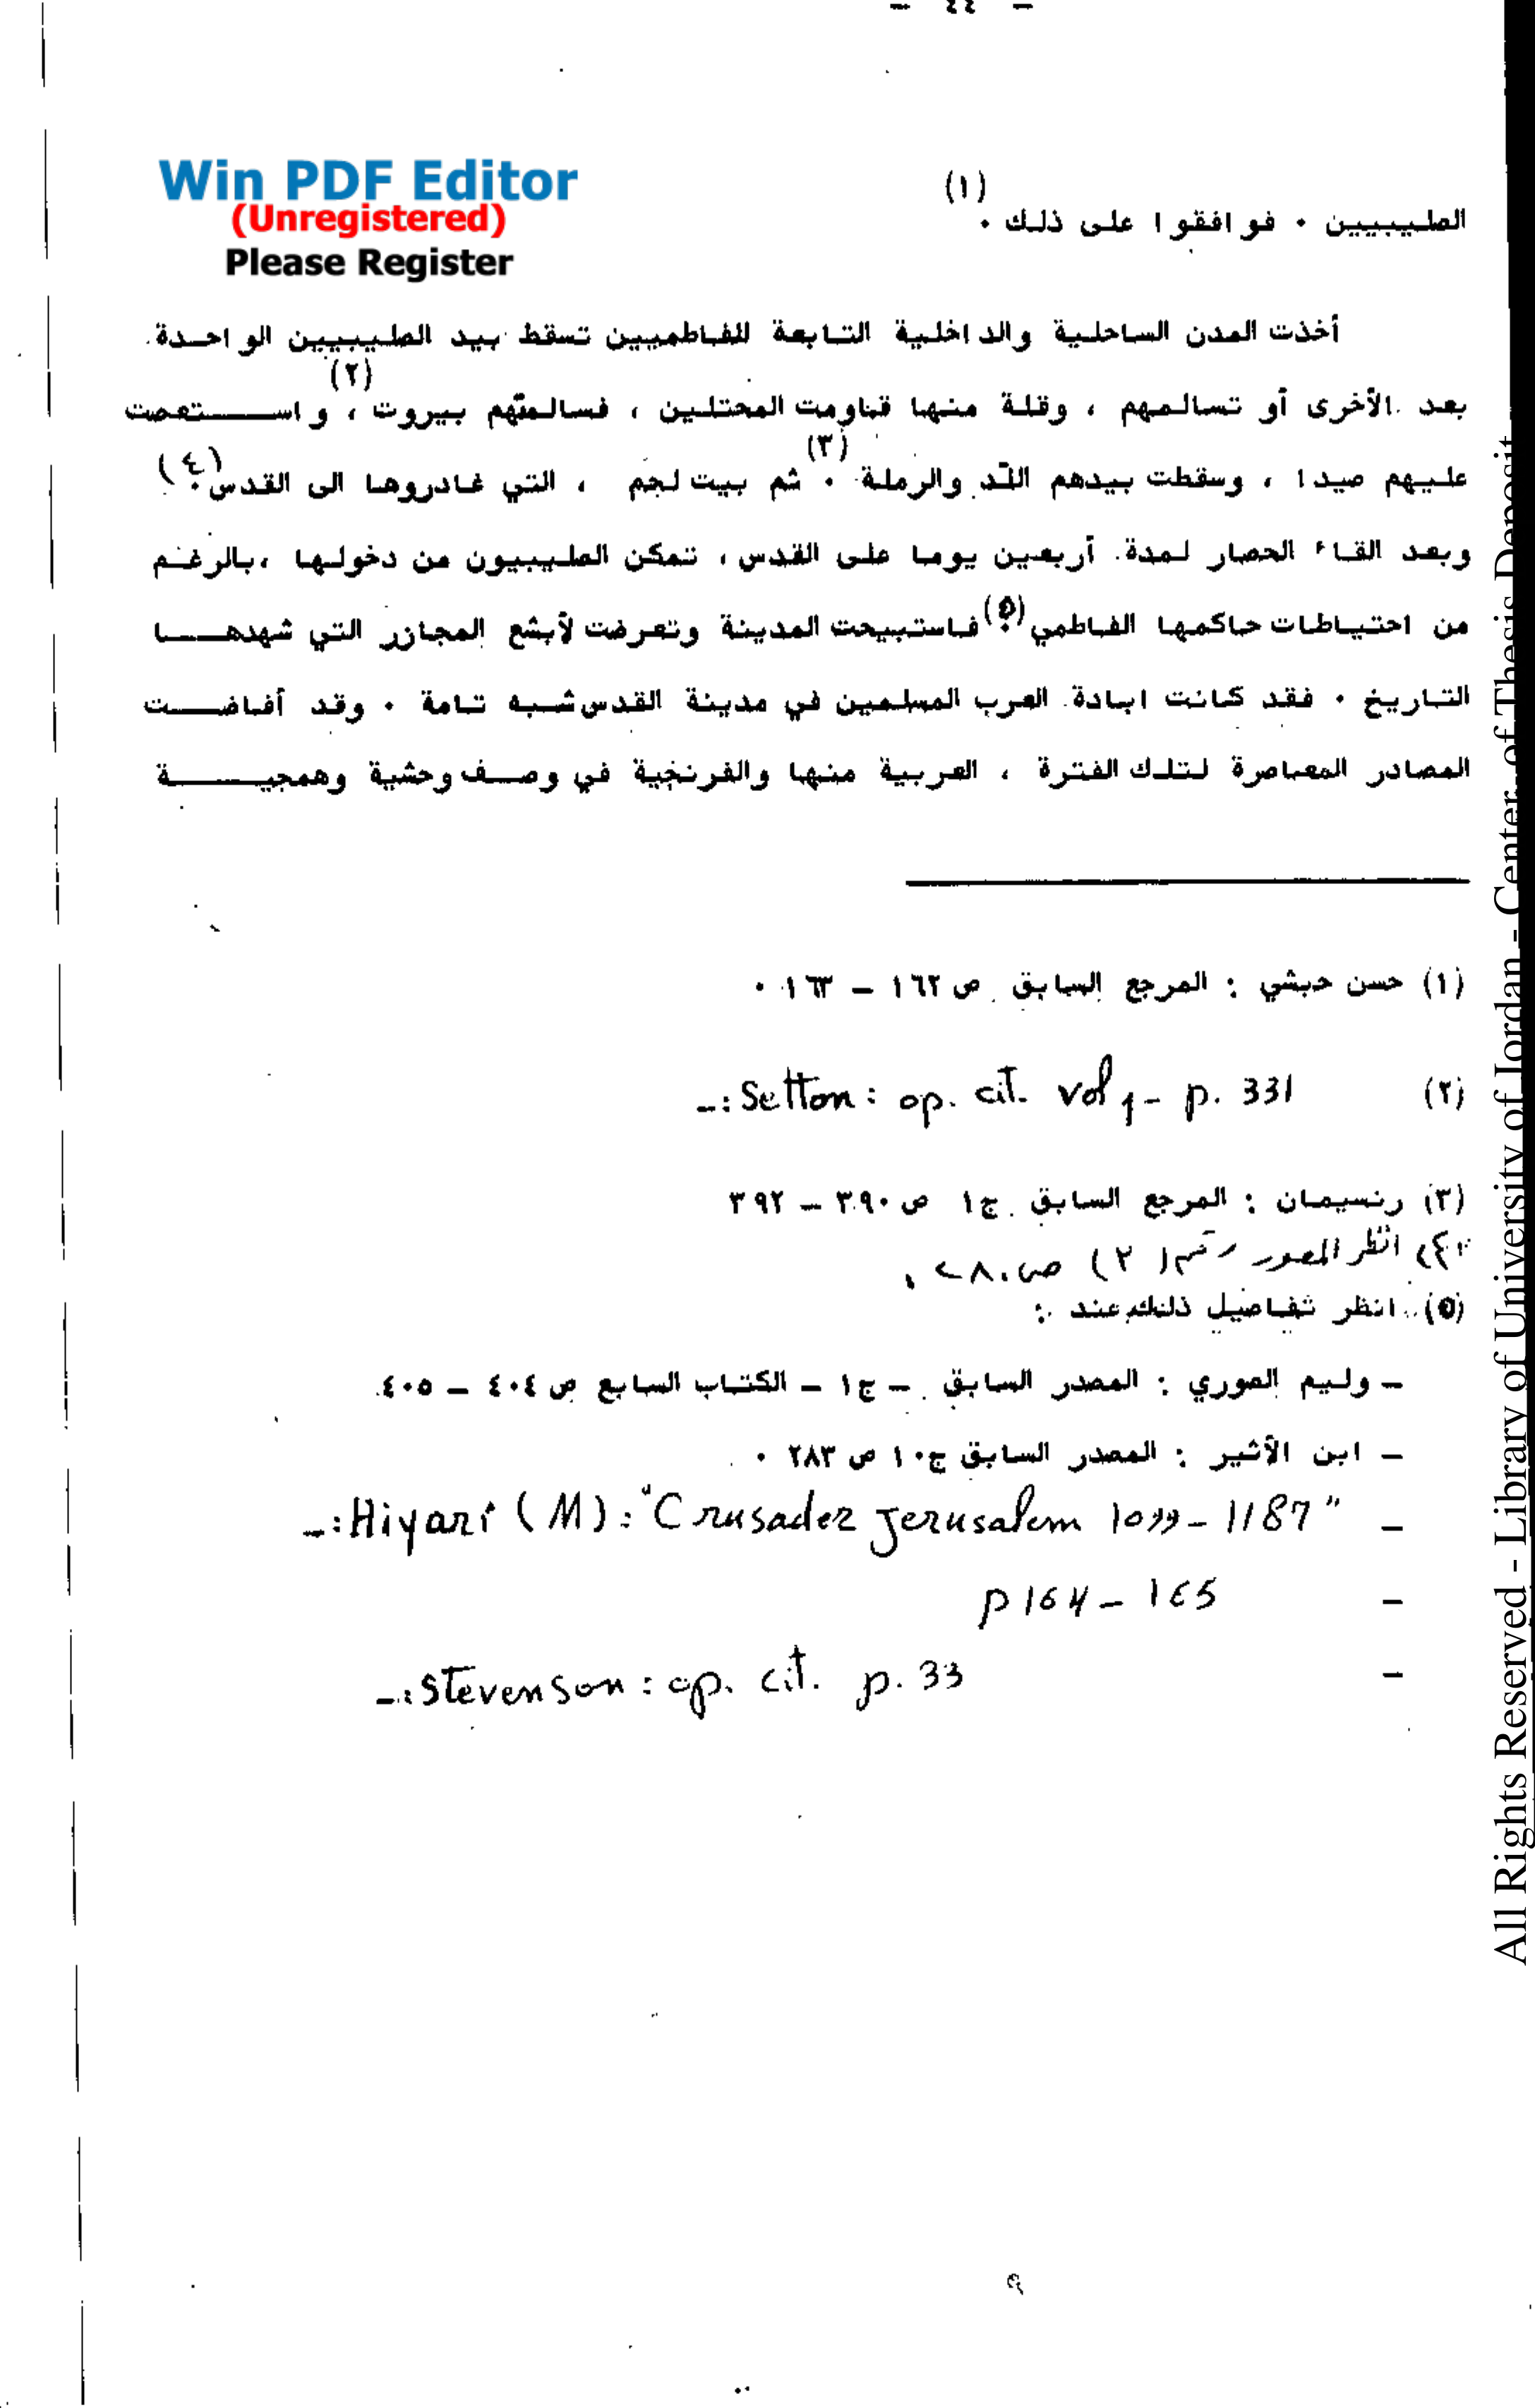 - ٤٤ -
Win PDF Editor
(Unregistered)
Please Register
الصليبيين . فوافقوا على ذلك .(١)
أخذت المدن الساحلية والداخلية التابعة للفاطميين تسقط بيد الصليبيين الواحدة
بعد الأخرى أو تسالمهم ، وقلة منها قاومت المحتلين ، فسالمتهم بيروت (٢)، واستعصت
عليهم صيدا ، وسقطت بيدهم اللّد والرملة (٣). ثم بيت لحم ، التي غادروها الى القدس .(٤)
وبعد القاء الحصار لمدة أربعين يوما على القدس ، تمكن الصليبيون من دخولها ، بالرغم
من احتياطات حاكمها الفاطمي .(٥) فاستبيحت المدينة وتعرضت لأبشع المجازر التي شهدها
التاريخ . فقد كانت ابادة العرب المسلمين في مدينة القدس شبه تامة . وقد أفاضت
المصادر المعاصرة لتلك الفترة ، العربية منها والفرنجية في وصف وحشية وهمجية
(١) حسن حبشي : المرجع السابق ص ١٦٢ - ١٦٣ .
(٢) -: Setton : op. cit. vol 1 - p. 331
(٣) رنسيمان : المرجع السابق ج١ ص ٣٩٠ - ٣٩٢
(٤) انظر المصور رقم (٢) ص
(٥) انظر تفاصيل ذلك عند :
- وليم الصوري : المصدر السابق - ج١ - الكتاب السابع ص ٤٠٤ - ٤٠٥
- ابن الأثير : المصدر السابق ج١٠ ص ٢٨٣ .
- -: Hiyari (M) : "Crusader Jerusalem 1099 - 1187"
- p 164 - 165
- -: Stevenson : op. cit. p. 33
All Rights Reserved - Library of University of Jordan - Center of Thesis Deposit